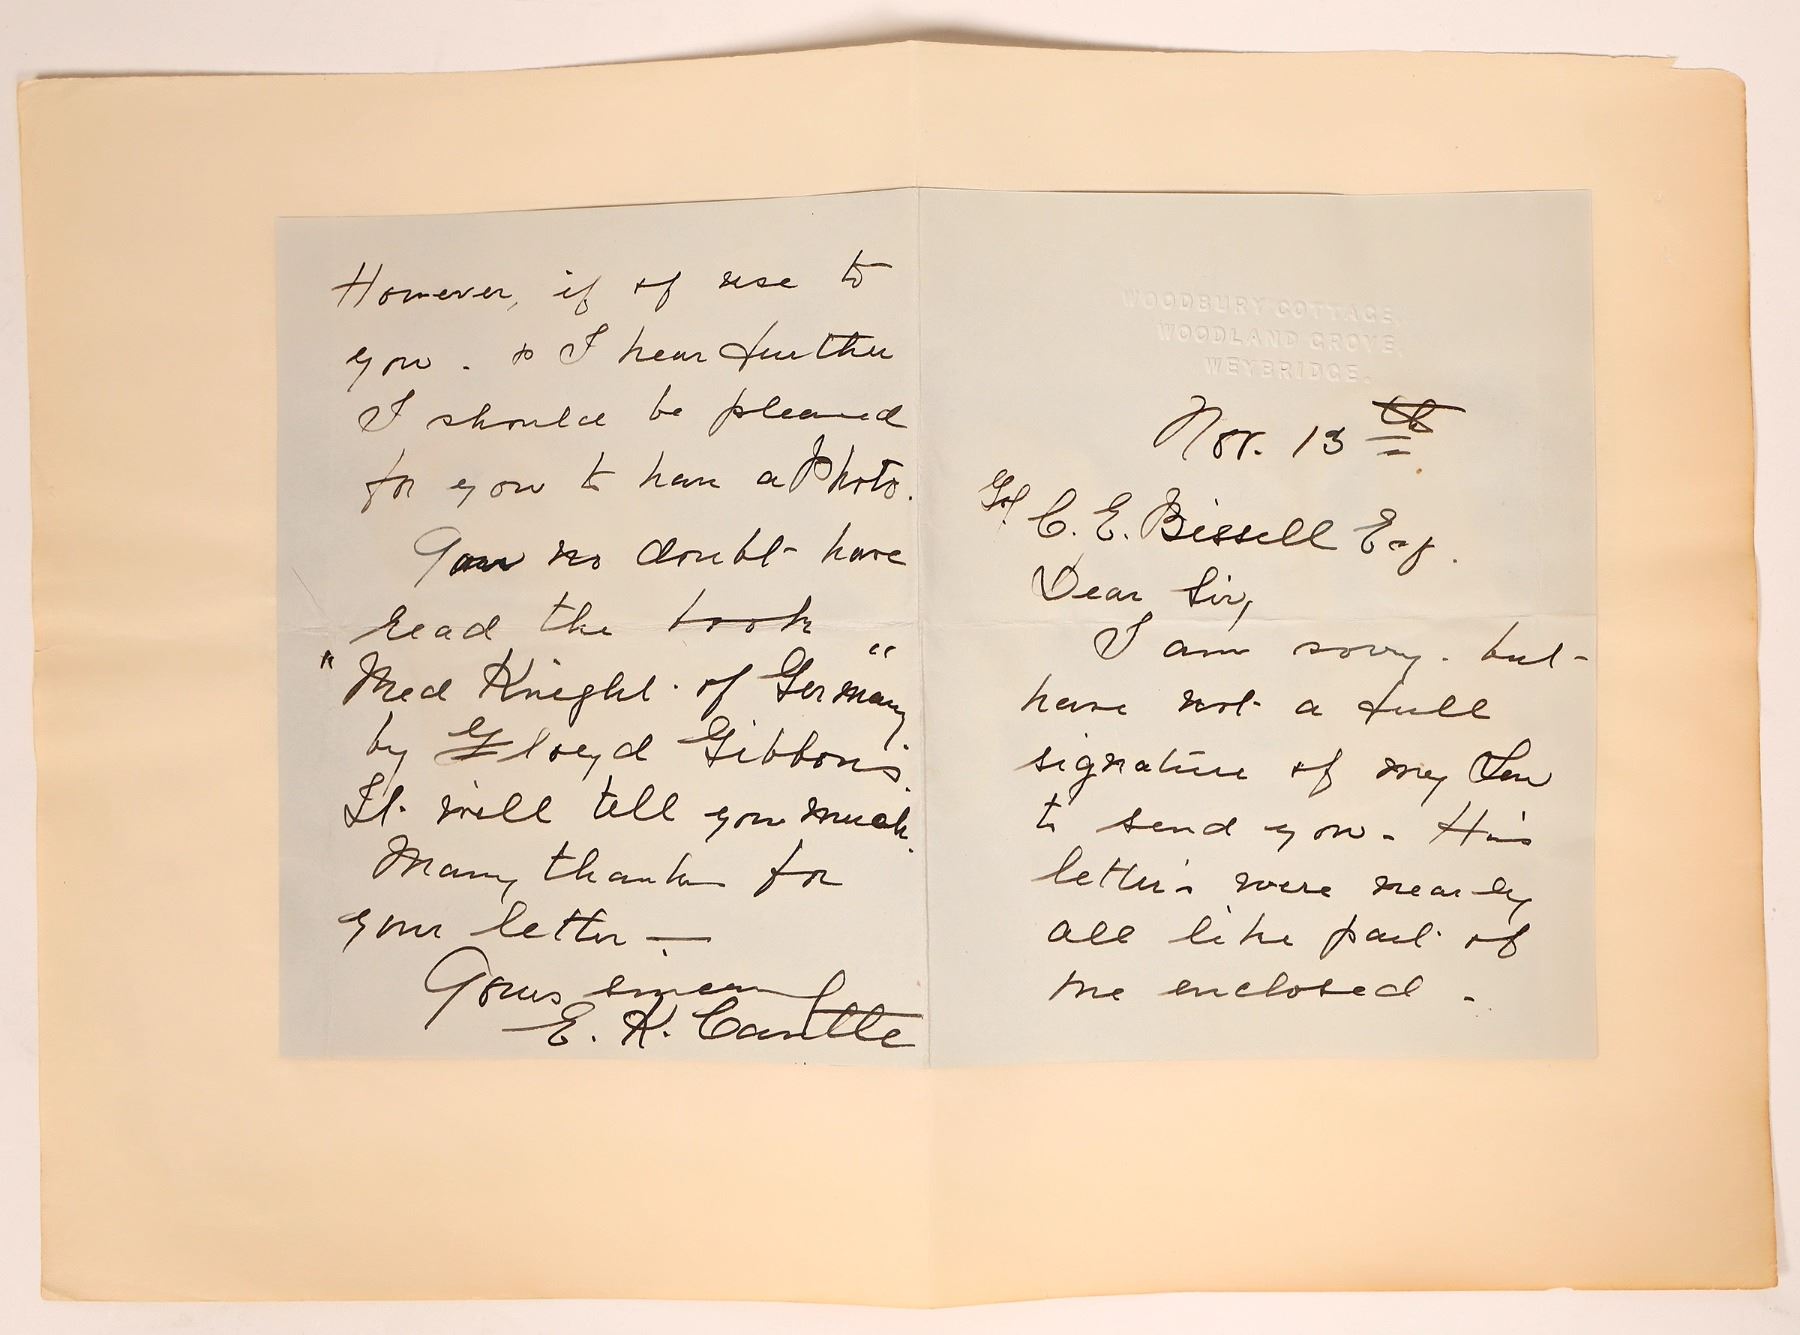 WOODBURY COTTAGE,
WOODLAND GROVE,
WEYBRIDGE.
Nov. 13th
C. E. Bissell Esq.
Dear Sir,
I am sorry. but
have not a full
signature of my Son
to send you. His
letters were nearly
all like part of
one enclosed.
However, if of use to
you. & I hear further
I should be pleased
for you to have a Photo.
You no doubt have
read the book
"Red Knight of Germany"
by Floyd Gibbons.
It will tell you much.
Many thanks for
your letter —
Yours sincerely
E. K.